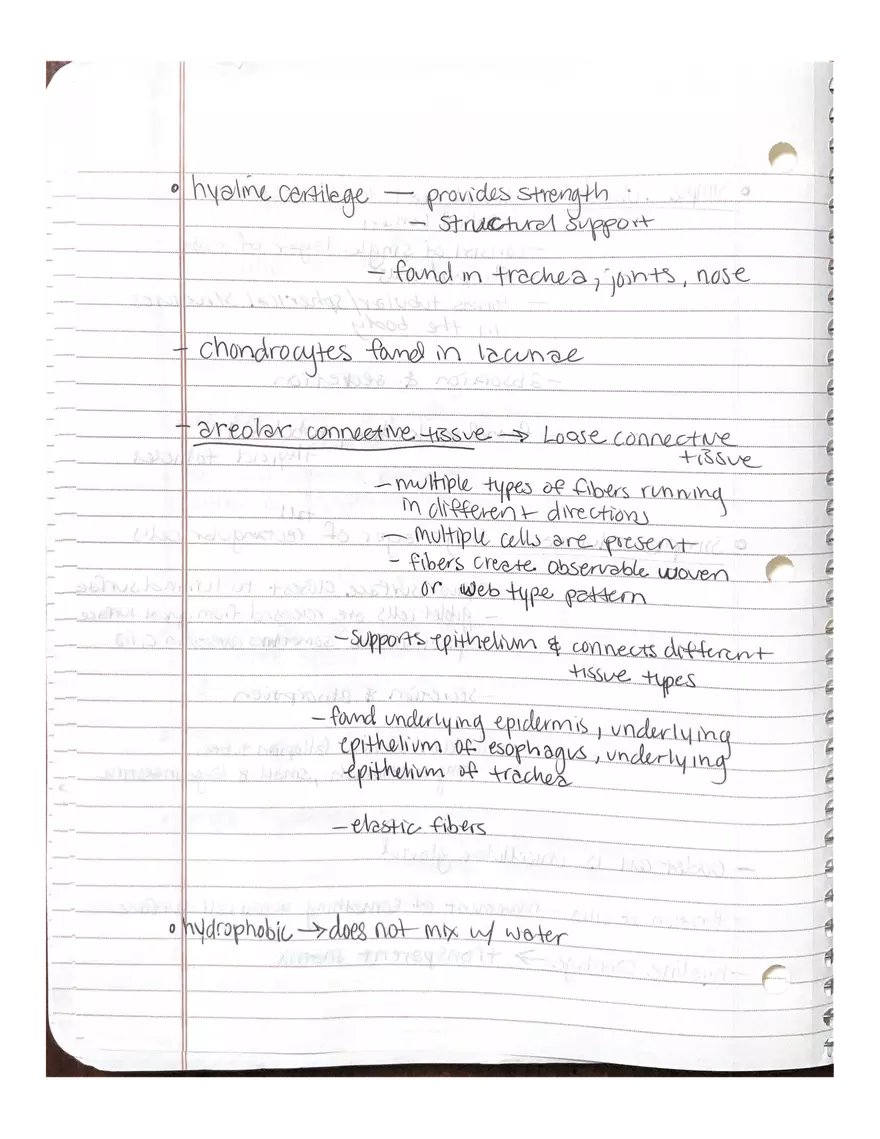 • hyaline cartilege — provides strength
— structural support
— found in trachea, joints, nose
- chondrocytes found in lacunae
- areolar connective tissue → Loose connective
tissue
- multiple types of fibers running
in different directions
— multiple cells are present
- fibers create observable woven
or web type pattern
- supports epithelium & connects different
tissue types
- found underlying epidermis, underlying
epithelium of esophagus, underlying
epithelium of trachea
- elastic fibers
• hydrophobic → does not mix w/ water